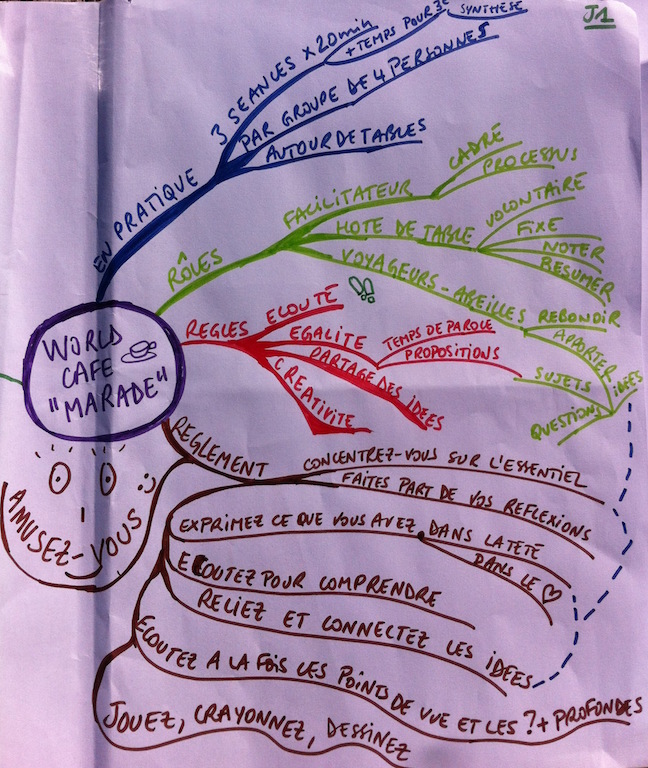 J1
3 SEANCES x 20min
+ TEMPS POUR 3E
SYNTHESE
PAR GROUPE DE 4 PERSONNES
AUTOUR DE TABLES
EN PRATIQUE
RÔLES
FACILITATEUR
CADRE
PROCESSUS
HOTE DE TABLE
VOLONTAIRE
FIXE
NOTER
RESUMER
VOYAGEURS - ABEILLES
REBONDIR
APPORTER
IDÉES
SUJETS
QUESTIONS
WORLD
CAFE
"MARADE"
REGLES
ECOUTE
EGALITE
TEMPS DE PAROLE
PROPOSITIONS
PARTAGE DES IDEES
CREATIVITE
REGLEMENT
CONCENTREZ-VOUS SUR L'ESSENTIEL
FAITES PART DE VOS REFLEXIONS
EXPRIMEZ CE QUE VOUS AVEZ
DANS LA TETE
DANS LE ♡
ECOUTEZ POUR COMPRENDRE
RELIEZ ET CONNECTEZ LES IDÉES
ECOUTEZ A LA FOIS LES POINTS DE VUE ET LES ? + PROFONDES
JOUEZ, CRAYONNEZ, DESSINEZ
AMUSEZ-VOUS :)